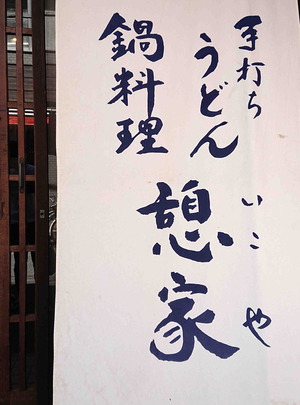 手打ち
うどん
鍋料理
いこや
憩家